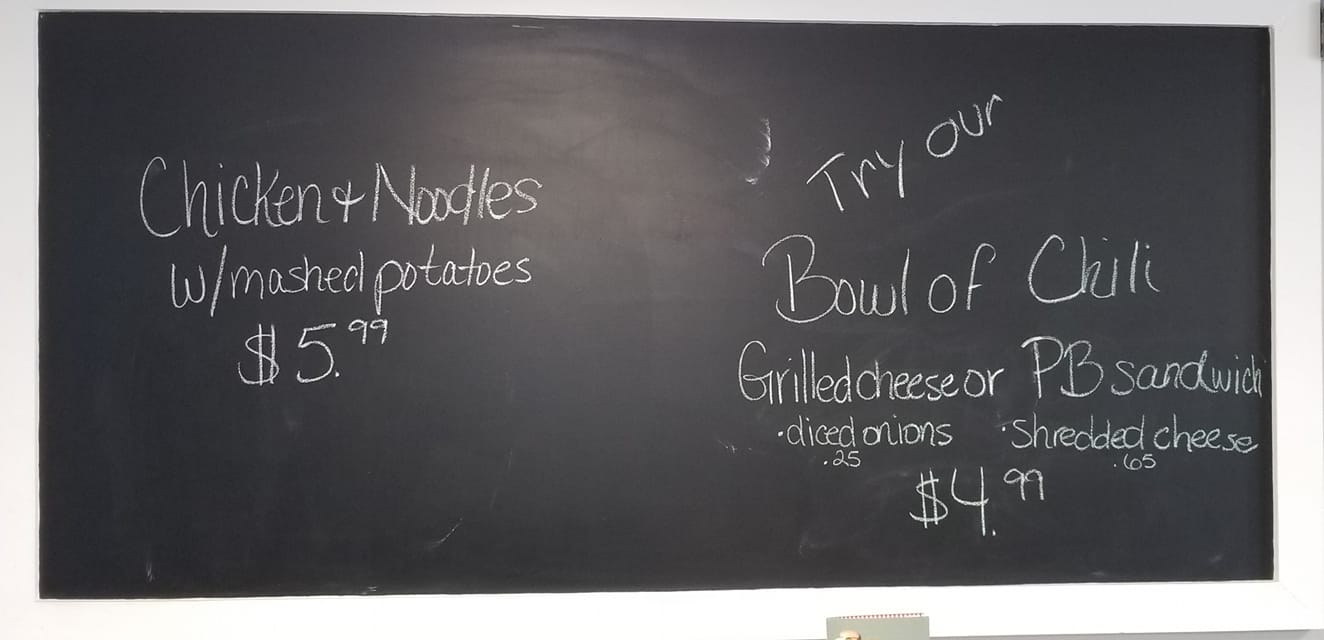 Chicken & Noodles
w/mashed potatoes
$5.99
Try our
Bowl of Chili
Grilled cheese or PB sandwich
·diced onions ·Shredded cheese
.25 .65
$4.99